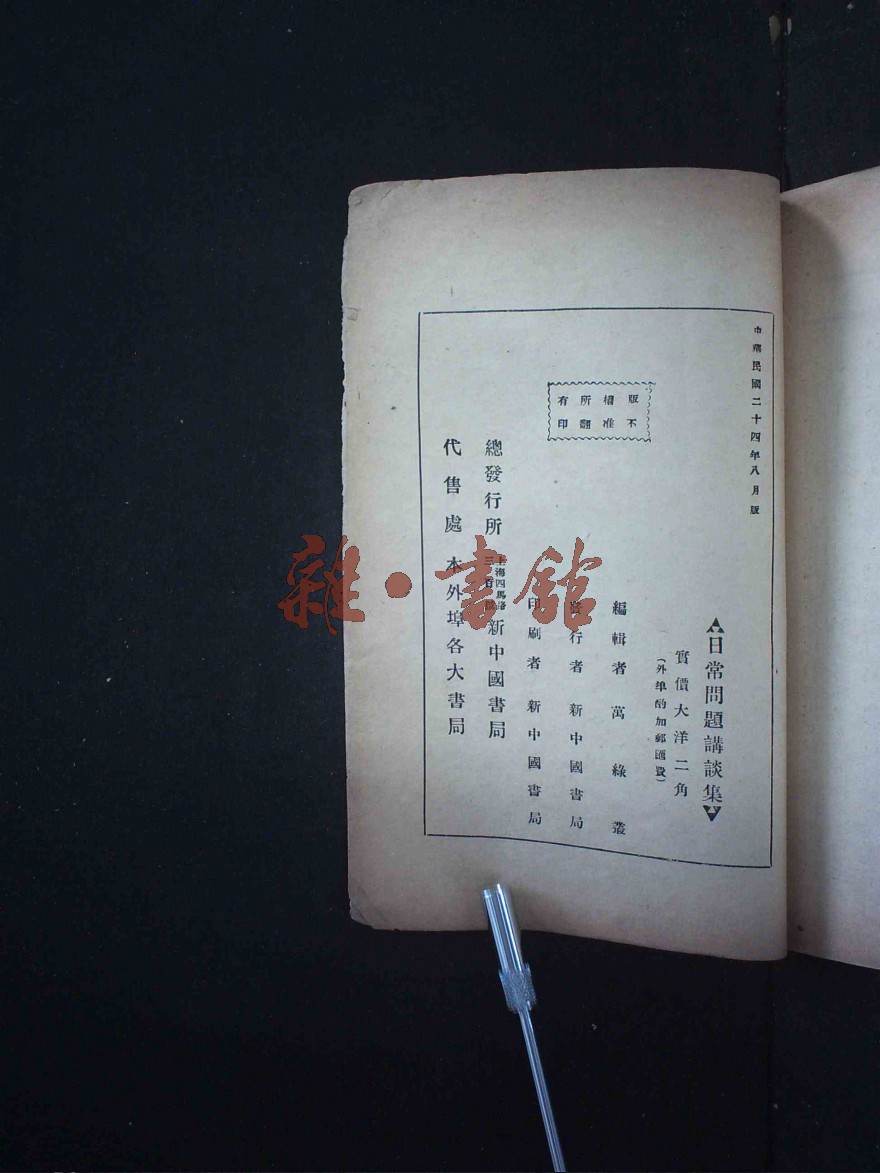 中華民國二十四年八月版
日常問題講談集
實價大洋二角
(外埠酌加郵匯費)
版權所有
不准翻印
編輯者 萬綠叢
發行者 新中國書局
印刷者 新中國書局
總發行所 上海四馬路 新中國書局
代售處 本外埠各大書局
雜·書館